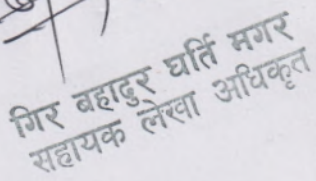 गिर बहादुर घर्ति मगर
सहायक लेखा अधिकृत